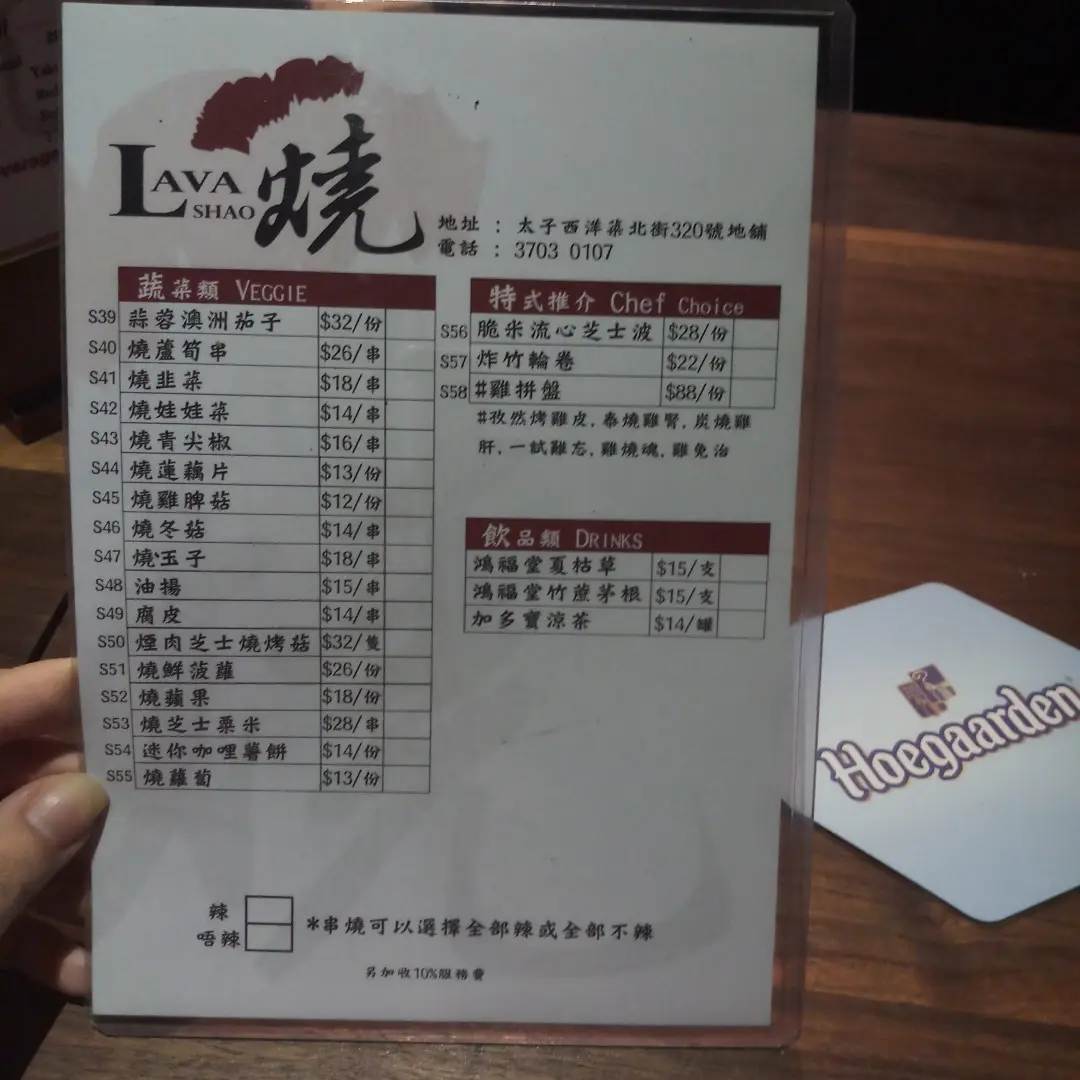 LAVA SHAO 燒
地址 : 太子西洋菜北街320號地舖
電話 : 3703 0107
蔬菜類 VEGGIE
S39 蒜蓉澳洲茄子 $32/份
S40 燒蘆筍串 $26/串
S41 燒韭菜 $18/串
S42 燒娃娃菜 $14/串
S43 燒青尖椒 $16/串
S44 燒蓮藕片 $13/份
S45 燒雞脾菇 $12/份
S46 燒冬菇 $14/串
S47 燒玉子 $18/串
S48 油揚 $15/串
S49 腐皮 $14/串
S50 煙肉芝士燒烤菇 $32/隻
S51 燒鮮菠蘿 $26/份
S52 燒蘋果 $18/份
S53 燒芝士粟米 $28/串
S54 迷你咖哩薯餅 $14/份
S55 燒蘿蔔 $13/份
特式推介 Chef Choice
S56 脆米流心芝士波 $28/份
S57 炸竹輪卷 $22/份
S58 #雞拼盤 $88/份
#孜然烤雞皮,泰燒雞腎,炭燒雞
肝,一試難忘,雞燒魂,雞免治
飲品類 DRINKS
鴻福堂夏枯草 $15/支
鴻福堂竹蔗茅根 $15/支
加多寶涼茶 $14/罐
辣
唔辣
*串燒可以選擇全部辣或全部不辣
另加收10%服務費
Hoegaarden